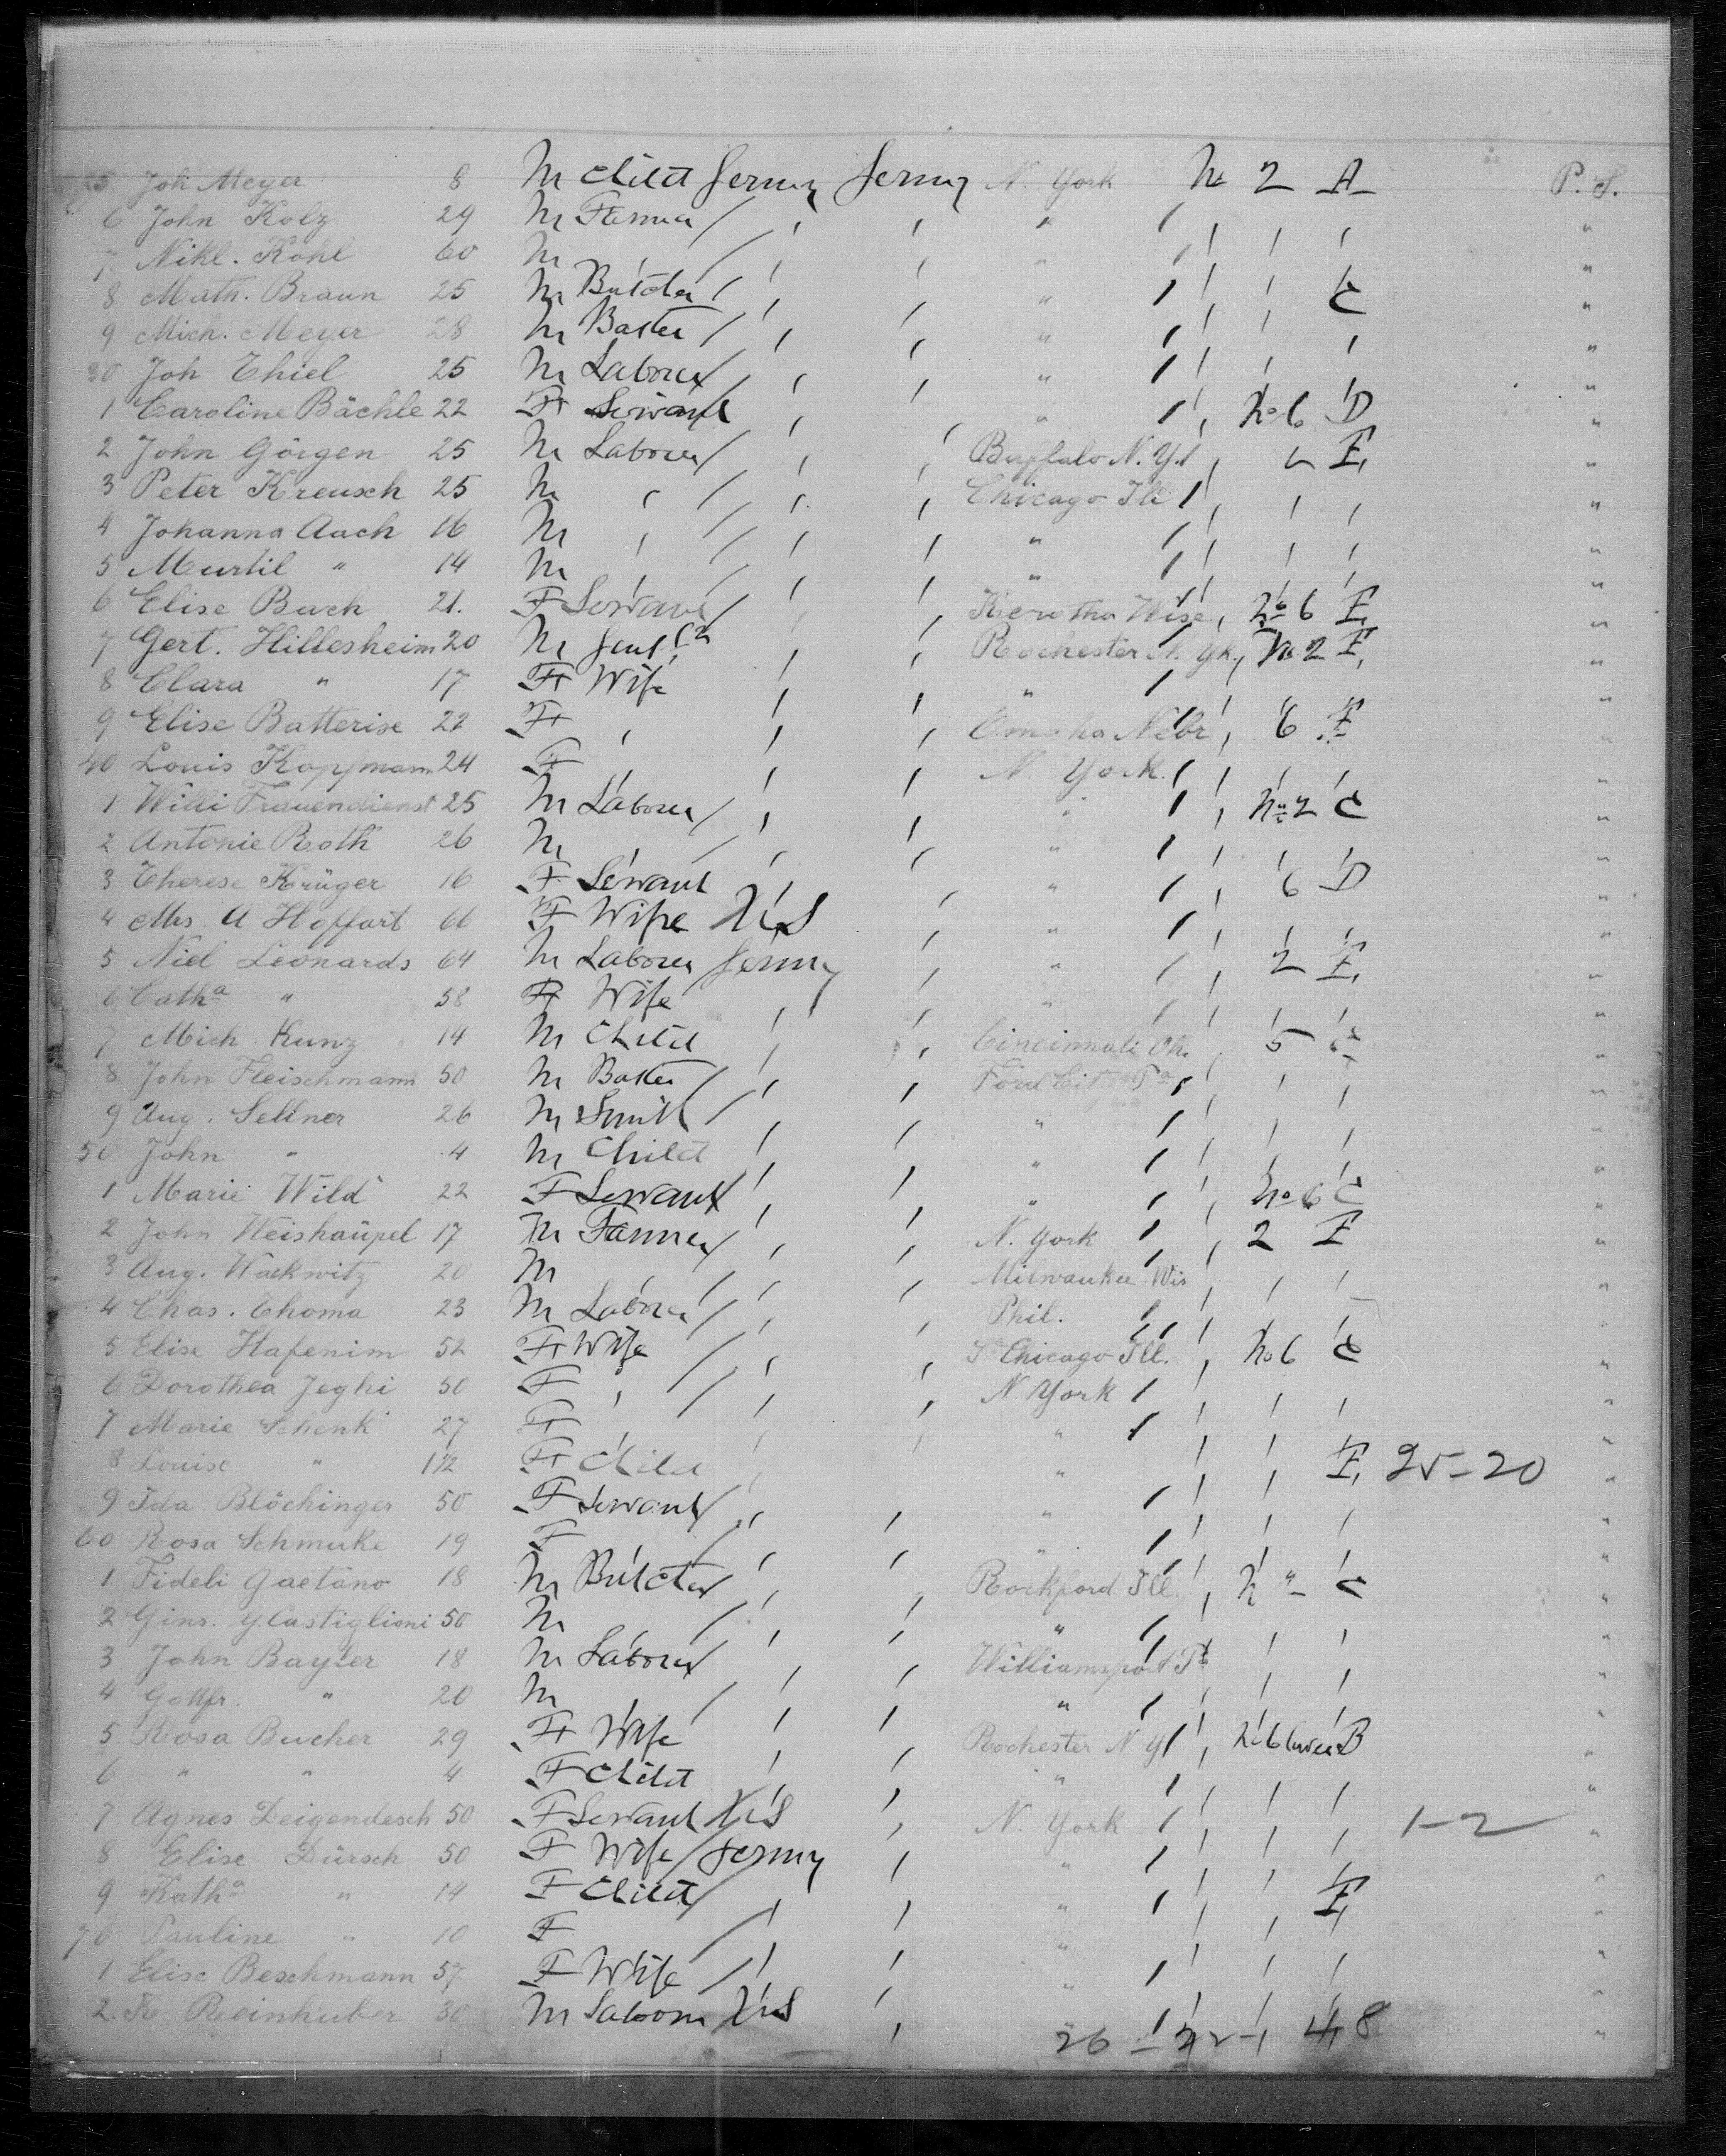 25 Joh Meyer 8 M Child Germy Germy N. York No 2 A P. S.
6 John Kolz 29 M Farmer / ' ' " ' ' ' ' "
7 Nikl. Kohl 60 M ' / ' ' " ' ' ' ' "
8 Math. Braun 25 M Butcher / ' ' " ' ' ' C "
9 Mich. Meyer 28 M Baker / ' ' " ' ' ' ' "
30 Joh Thiel 25 M Laborer ' ' " ' ' ' ' "
1 Caroline Bächle 22 F Servant ' ' " ' ' No 6 D "
2 John Görgen 25 M Laborer ' ' Buffalo N. Y. ' ' 2 E "
3 Peter Kreusch 25 M ' / ' ' Chicago Ill ' ' ' ' "
4 Johanna Aach 16 M ' / ' ' " ' ' ' ' "
5 Meurtil " 14 M ' / ' ' " ' ' ' ' "
6 Elise Bach 21. F Servant / ' ' Kenotha Wise, No 6 E "
7 Gert. Hillesheim 20 M Gent ' ' Rochester N. Yk., No 2 E "
8 Clara " 17 F Wife ' ' " ' ' ' ' "
9 Elise Batterise 22 F ' ' ' Omaha Nebr, 6 E "
40 Louis Kopfmann 24 F ' ' ' N. York ' ' ' ' "
1 Willi Frauendienst 25 M Laborer / ' ' " ' ' No 2 C "
2 Antonie Roth 26 M ' / ' ' " ' ' ' ' "
3 Therese Krüger 16 F Servant ' ' " ' ' 6 D "
4 Mrs. A Hoffart 66 F Wife U.S ' " ' ' ' ' "
5 Niel Leonards 64 M Laborer Germy ' " ' ' 2 E "
6 Catha " 58 F Wife ' ' " ' ' ' ' "
7 Mich Kunz 14 M Child ' ' Cincinnati Oh. ' 5 C "
8 John Fleischmann 50 M Baker / ' ' Ford City Pa ' ' ' ' "
9 Aug. Sellner 26 M Smith / ' ' " ' ' ' ' "
50 John " 4 M Child ' ' " ' ' ' ' "
1 Marie Wild 22 F Servant ' ' " ' ' No 6 C "
2 John Weishaüpel 17 M Farmer / ' ' N. York ' ' 2 E "
3 Aug. Wackwitz 20 M ' / ' ' Milwaukee Wis ' ' ' ' "
4 Chas. Thoma 23 M Laborer / ' ' Phil. ' ' ' ' "
5 Elise Hafenim 52 F Wife / ' ' So Chicago Ill. ' No 6 C "
6 Dorothea Jeghi 50 F ' / ' ' N. York ' ' ' ' "
7 Marie Schenk 27 F ' ' ' " ' ' ' ' "
8 Louise " 1 1/2 F Child ' " ' ' E 25-20 "
9 Ida Blöchinger 50 F Servant / ' ' " ' ' ' ' "
60 Rosa Schmuke 19 F ' / ' ' " ' ' ' ' "
1 Fideli Gaetano 18 M Butcher ' ' Rockford Ill ' ' C "
2 Gins. G. Castiglioni 50 M ' / ' ' " ' ' ' ' "
3 John Bayler 18 M Laborer ' ' Williamsport Pa ' ' ' "
4 Gottfr. " 20 M ' / ' ' " ' ' ' ' "
5 Rosa Bucher 29 F Wife ' ' Rochester N Y ' ' No 6 B "
6 " " 4 F Child ' ' " ' ' ' ' "
7 Agnes Deigendesch 50 F Servant U.S ' N. York ' ' ' ' 1-2 "
8 Elise Dürsch 50 F Wife / Germy ' " ' ' ' ' "
9 Katha " 14 F Child / ' ' " ' ' ' E "
70 Pauline " 10 F / ' ' " ' ' ' ' "
1 Elise Beschmann 57 F Wife / ' ' " ' ' ' ' "
2. K Reinhuber 30 M Laborer U.S ' " ' ' ' ' "
26 - 22 - 48